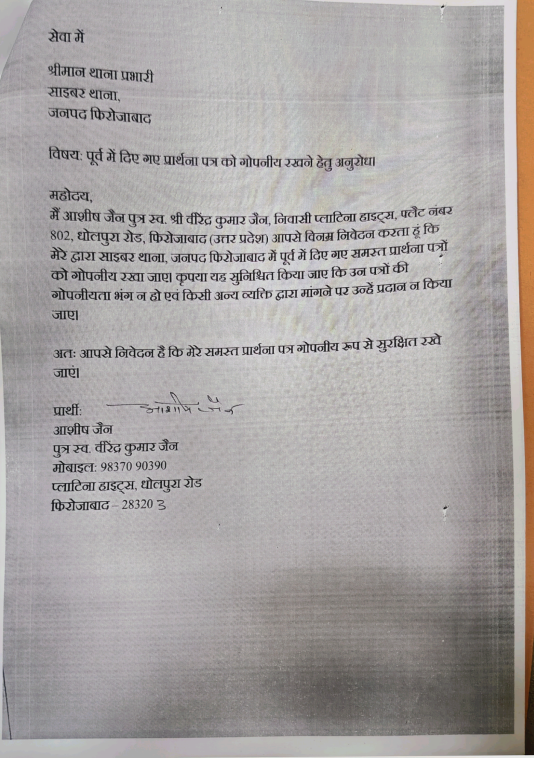 सेवा में
श्रीमान थाना प्रभारी
साइबर थाना,
जनपद फिरोजाबाद
विषय: पूर्व में दिए गए प्रार्थना पत्र को गोपनीय रखने हेतु अनुरोध।
महोदय,
मैं आशीष जैन पुत्र स्व. श्री वीरेंद्र कुमार जैन, निवासी प्लाटिना हाइट्स, फ्लैट नंबर
802, धोलपुरा रोड, फिरोजाबाद (उत्तर प्रदेश) आपसे विनम्र निवेदन करता हूं कि
मेरे द्वारा साइबर थाना, जनपद फिरोजाबाद में पूर्व में दिए गए समस्त प्रार्थना पत्रों
को गोपनीय रखा जाए। कृपया यह सुनिश्चित किया जाए कि उन पत्रों की
गोपनीयता भंग न हो एवं किसी अन्य व्यक्ति द्वारा मांगने पर उन्हें प्रदान न किया
जाए।
अतः आपसे निवेदन है कि मेरे समस्त प्रार्थना पत्र गोपनीय रूप से सुरक्षित रखे
जाएं।
प्रार्थी: आशीष जैन
आशीष जैन
पुत्र स्व. वीरेंद्र कुमार जैन
मोबाइल: 98370 90390
प्लाटिना हाइट्स, धोलपुरा रोड
फिरोजाबाद – 283203